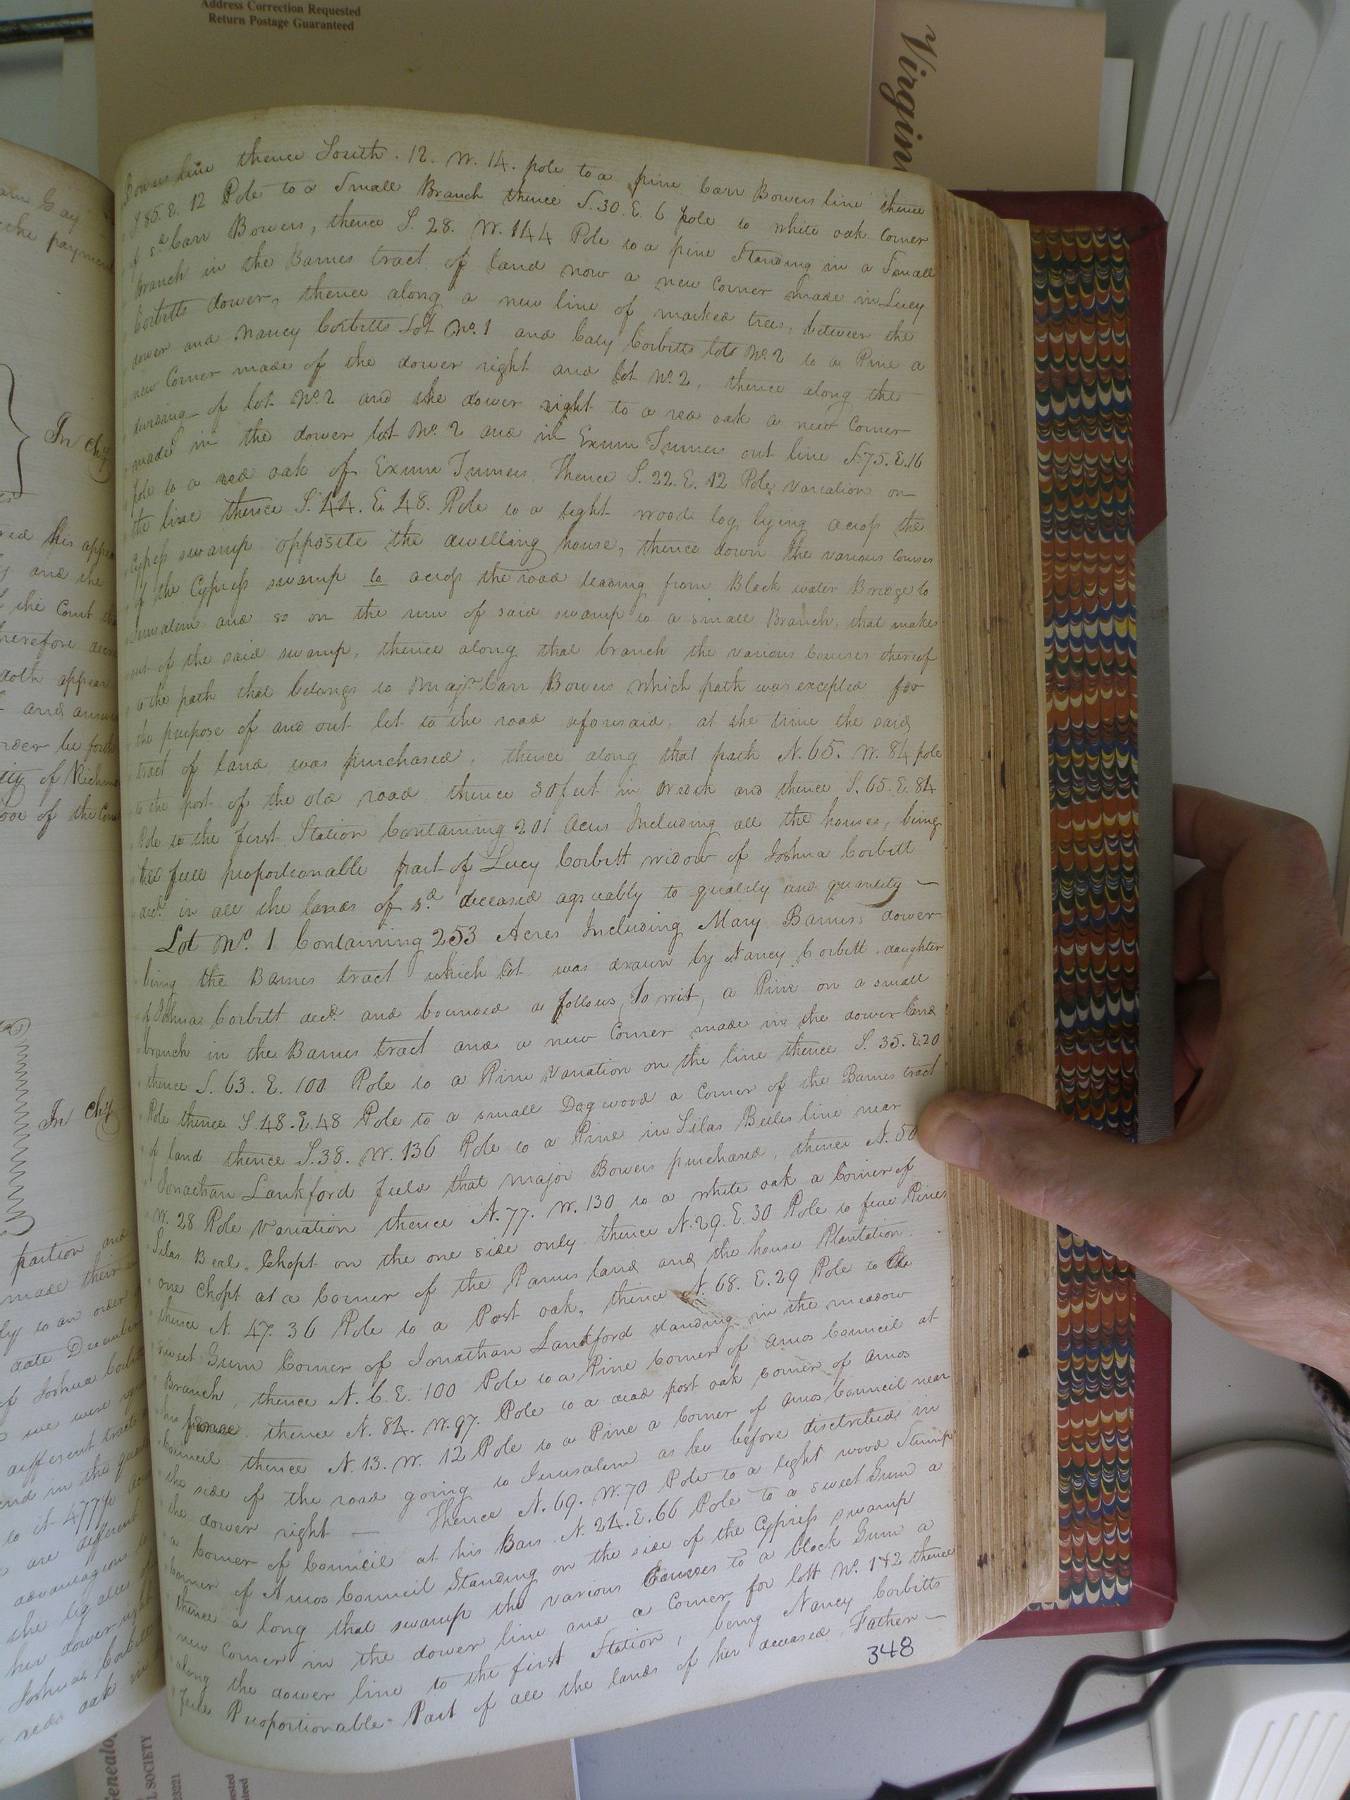 Address Correction Requested
Return Postage Guaranteed
Virgin
Bowers line thence South. 12. W. 14. pole to a pine Carr Bowers line thence
S. 85. E. 12 Pole to a Small Branch thence S. 30. E. 6 pole to white oak Corner
of sd. Carr Bowers, thence S. 28. W. 144 Pole to a pine Standing in a Small
branch in the Barnes tract of land now a new Corner made in Lucy
Corbitts dower, thence along a new line of marked trees, between the
dower and Nancy Corbitts Lot No. 1 and Caty Corbitts lots No. 2 to a Pine a
new Corner made of the dower right and Lot No. 2, thence along the
deviding of lot No. 2 and the dower right to a red oak a new Corner
made in the dower lot No. 2 and in Exum Turners out line S. 75. E. 16
pole to a red oak of Exum Turners Thence S. 22. E. 12 Pole variation on
the line thence S. 44. E. 48. Pole to a light wood log lying across the
Cypress swamp opposite the dwelling house, thence down the various courses
of the Cypress swamp to across the road leading from Black water Bridge to
Jerusalem and so on the run of said swamp to a small Branch, that makes
out of the said swamp, thence along that branch the various Courses thereof
to the path that belongs to Majr. Carr Bowers which path was excepted for
the purpose of and out let to the road aforesaid, at the time the said
tract of land was purchased, thence along that path N. 65. W. 84 pole
to the post of the old road thence 30 feet in Width and thence S. 65. E. 84
Pole to the first Station Containing 201 Acres Including all the houses, being
the full proportionable part of Lucy Corbitt widow of Joshua Corbitt
decd. in all the lands of sd. deceased agreeably to quality and quantity —
Lot No. 1 Containing 253 Acres Including Mary Barnes, dower
being the Barnes tract which lot was drawn by Nancy Corbitt daughter
of Joshua Corbitt decd. and bounded as follows, To wit, a Pine on a small
branch in the Barnes tract and a new Corner made in the dower land
thence S. 63. E. 100 Pole to a Pine Variation on the line thence S. 35. E. 20
Pole thence S. 48. E. 48 Pole to a small Dagwood a Corner of the Barnes tract
of land thence S. 38. W. 136 Pole to a Pine in Silas Beeles line near
Jonathan Lankford field that major Bowers purchased, thence N. 50
W. 28 Pole Variation thence N. 77. W. 130 to a white oak a Corner of
Silas Beel. Chopt on the one side only thence N. 29. E. 30 Pole to few Pines
one Chopt as a Corner of the Barnes land and the house Plantation
thence N. 47. 36 Pole to a Post oak, thence N. 68. E. 29 Pole to the
sweet Gum Corner of Jonathan Lankford standing in the meadow
Branch, thence N. 6. E. 100 Pole to a Pine Corner of Amos Council at
his fence thence N. 84. W. 97. Pole to a dead post oak corner of Amos
Council thence N. 13. W. 12 Pole to a Pine a Corner of Amos Council near
the side of the road going to Jerusalem as her before discribed in
the dower right — Thence N. 69. W. 70 Pole to a light wood Stump
a Corner of Council at his Bars N. 24. E. 66 Pole to a sweet Gum a
Corner of Amos Council Standing on the side of the Cypress swamp
thence a long that swamp the various Courses to a black Gum a
new Corner in the dower line and a Corner for lott No. 1 & 2 thence
along the dower line to the first Station, being Nancy Corbitts
full Proportionable Part of all the lands of her deceased Father —
348
In Chy
In Chy
partion and
L SOCIETY